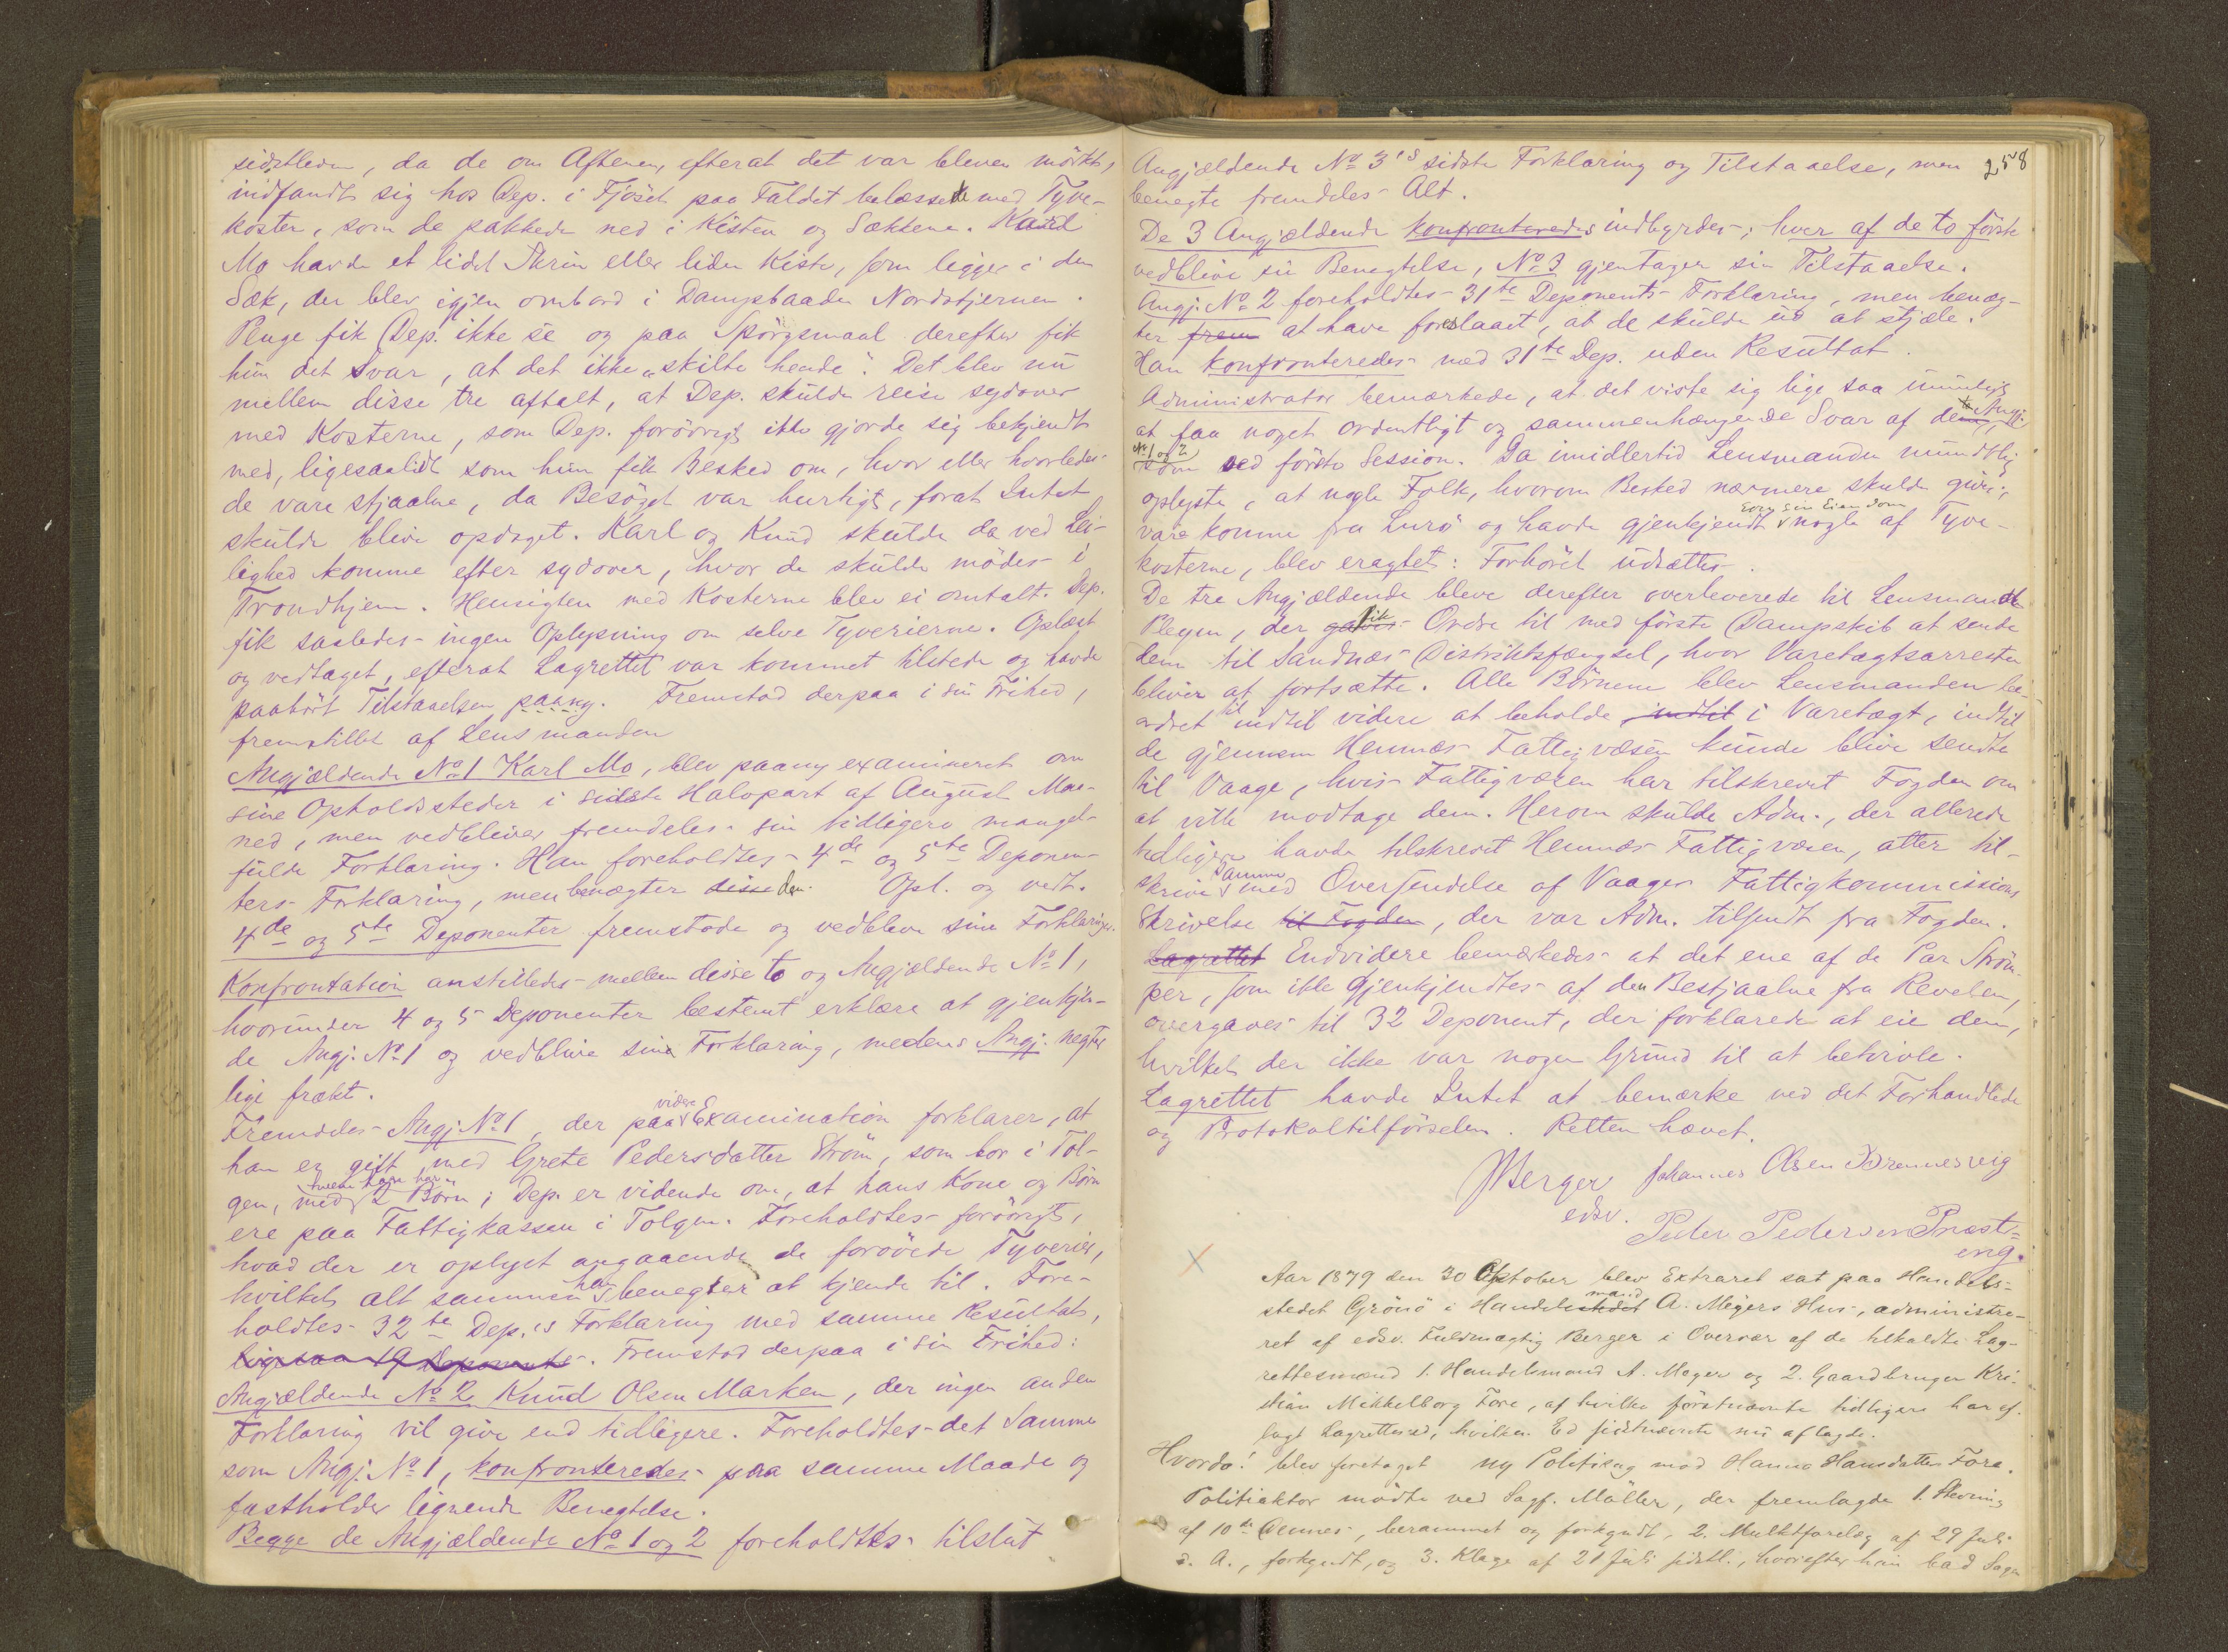 sidstleden, da de om Aftenen, efterat det var bleven mörkt,
indfandt sig hos Dep. i Fjöset paa Faldet belæssede med Tyve-
koster, som de pakkede ned i Kisten og Sækkene. Karl
Mo havde et lidet Skrin eller liden Kiste, som ligger i den
Sæk, der blev igjen ombord i Dampbaaden Nordstjernen.
Penge fik Dep. ikke se og paa Spörgsmaal derefter fik
hun det Svar, at det ikke "skilte hende". Det blev nu
mellem disse tre aftalt, at Dep. skulde reise sydover
med Kosterne, som Dep. forövrigt ikke gjorde sig bekjendt
med, ligesaalidt som hun fik Besked om, hvor eller hvorledes
de vare stjaalne, da Besöget var hurtigt, forat Intet
skulde blive opdaget. Karl og Knud skulde da ved Lei-
lighed komme efter sydover, hvor de skulde mödes i
Trondhjem. Hensigten med Kosterne blev ei omtalt. Dep.
fik saaledes ingen Oplysning om selve Tyverierne. Oplæst
og vedtaget, efterat Lagrettet var kommet tilstede og havde
paahört Tilstaaelsen paany. Fremstod derpaa i sin Frihed,
fremstillet af Lensmanden
Angjældende No 1 Karl Mo, blev paany examineret om
sine Opholdssteder i sidste Halvpart af August Maa-
ned, men vedbliver fremdeles sin tidligere mangel-
fulde Forklaring. Han foreholdtes 4de og 5te Deponen-
ters Forklaring, men benægter disse den. Opl. og vedt.
4de og 5te Deponenter fremstode og vedbleve sine Forklaringer.
Konfrontation anstilledes mellem disse to og Angjældende No 1,
hvorunder 4 og 5 Deponenter bestemt erklære at gjenkjen-
de Angj. No 1 og vedblive sine Forklaring, medens Angj. negter
lige frækt.
Fremdeles Angj. No 1, der paa videre Examination forklarer, at
han er gift med Grete Pedersdatter Ström, som bor i Tol-
gen, med hvem han har 2 Börn; Dep. er vidende om, at hans Kone og Börn
ere paa Fattigkassen i Tolgen. Foreholdtes forövrigt,
hvad der er oplyst angaaende de forövede Tyverier,
hvilket alt sammen han benegter at kjende til. Fore-
holdtes 32te Dep.'s Forklaring med samme Resultat,
ligesaa 19 Deponents. Fremstod derpaa i sin Frihed:
Angjældende No 2 Knud Olsen Marken, der ingen anden
Forklaring vil give end tidligere. Foreholdtes det Samme
som Angj. No 1, konfronteredes paa samme Maade og
fastholder lignende Benegtelse.
Begge de Angjældende No 1 og 2 foreholdtes tilslut
258
Angjældende No 3's sidste Forklaring og Tilstaaelse, men
benegte fremdeles Alt.
De 3 Angjældende konfronteredes indbyrdes; hver af de to förste
vedblive sin Benegtelse, No 3 gjentager sin Tilstaaelse.
Angj. No 2 foreholdtes 31te Deponents Forklaring, men benæg-
ter frem at have foreslaaet, at de skulde ud at stjæle.
Han konfronteredes med 31te Dep. uden Resultat.
Administrator bemærkede, at det viste sig lige saa umuligt
at faa noget ordentligt og sammenhængende Svar af de to Angj.
No 1 og 2 som ved förste Session. Da imidlertid Lensmanden mundtlig
oplyste, at nogle Folk, hvorom Besked nærmere skulde gives,
vare komne fra Lurö og havde gjenkjendt som sin Eiendom nogle af Tyve-
kosterne, blev eragtet: Forhöret udsættes.
De tre Angjældende bleve derefter overleverede til Lensmand
Pleym, der gaves fik Ordre til med förste Dampskib at sende
dem til Sandnæs Distriktsfængsel, hvor Varetægtsarresten
bliver at fortsætte. Alle Börnene blev Lensmanden be-
ordret til indtil videre at beholde indtil i Varetægt, indtil
de gjennem Hemnæs Fattigvæsen kunde blive sendte
til Vaage, hvis Fattigvæsen har tilskrevet Fogden om
at ville modtage dem. Herom skulde Adm., der allerede
tidligere havde tilskrevet Hemnæs Fattigvæsen, atter til-
skrive samme med Oversendelse af Vaages Fattigkommissions
Skrivelse til Fogden, der var Adm. tilsendt fra Fogden.
Lagrettet Endvidere bemærkedes at det ene af de Par Ström-
per, som ikke gjenkjendtes af den Bestjaalne fra Revelen,
overgaves til 32 Deponent, der forklarede at eie dem,
hvilket der ikke var nogen Grund til at betvivle.
Lagrettet havde Intet at bemærke ved det Forhandlede
og Protokoltilförselen. Retten hævet.
JBerger Johannes Olsen Brennesvig
edsv.
Peder Pedersen Præst-
eng.
Aar 1879 den 30 Oktober blev Extraret sat paa Handels-
stedet Grönö i Handelsstedet mand A. Meyers Hus, administre-
ret af edsv. Fuldmægtig Berger i Overvær af de tilkaldte Lag-
rettesmænd 1. Handelsmand A. Meyer og 2. Gaardbruger Kri-
stian Mikkelborg Fore, af hvilke förstnævnte tidligere har af-
lagt Lagrettesed, hvilken Ed sidstnævnte nu aflagde.
Hvorda! blev foretaget ny Politisag mod Hanna Hansdatter Fore.
Politiaktor mödte ved Sagf. Möller, der fremlagde 1. Stevning
af 10de Dennes, berammet og forkyndt, 2. Mulktforelæg af 29 Juli
d. A., forkyndt, og 3. Klage af 21 Juli sidstl., hvorefter han bad Sagen